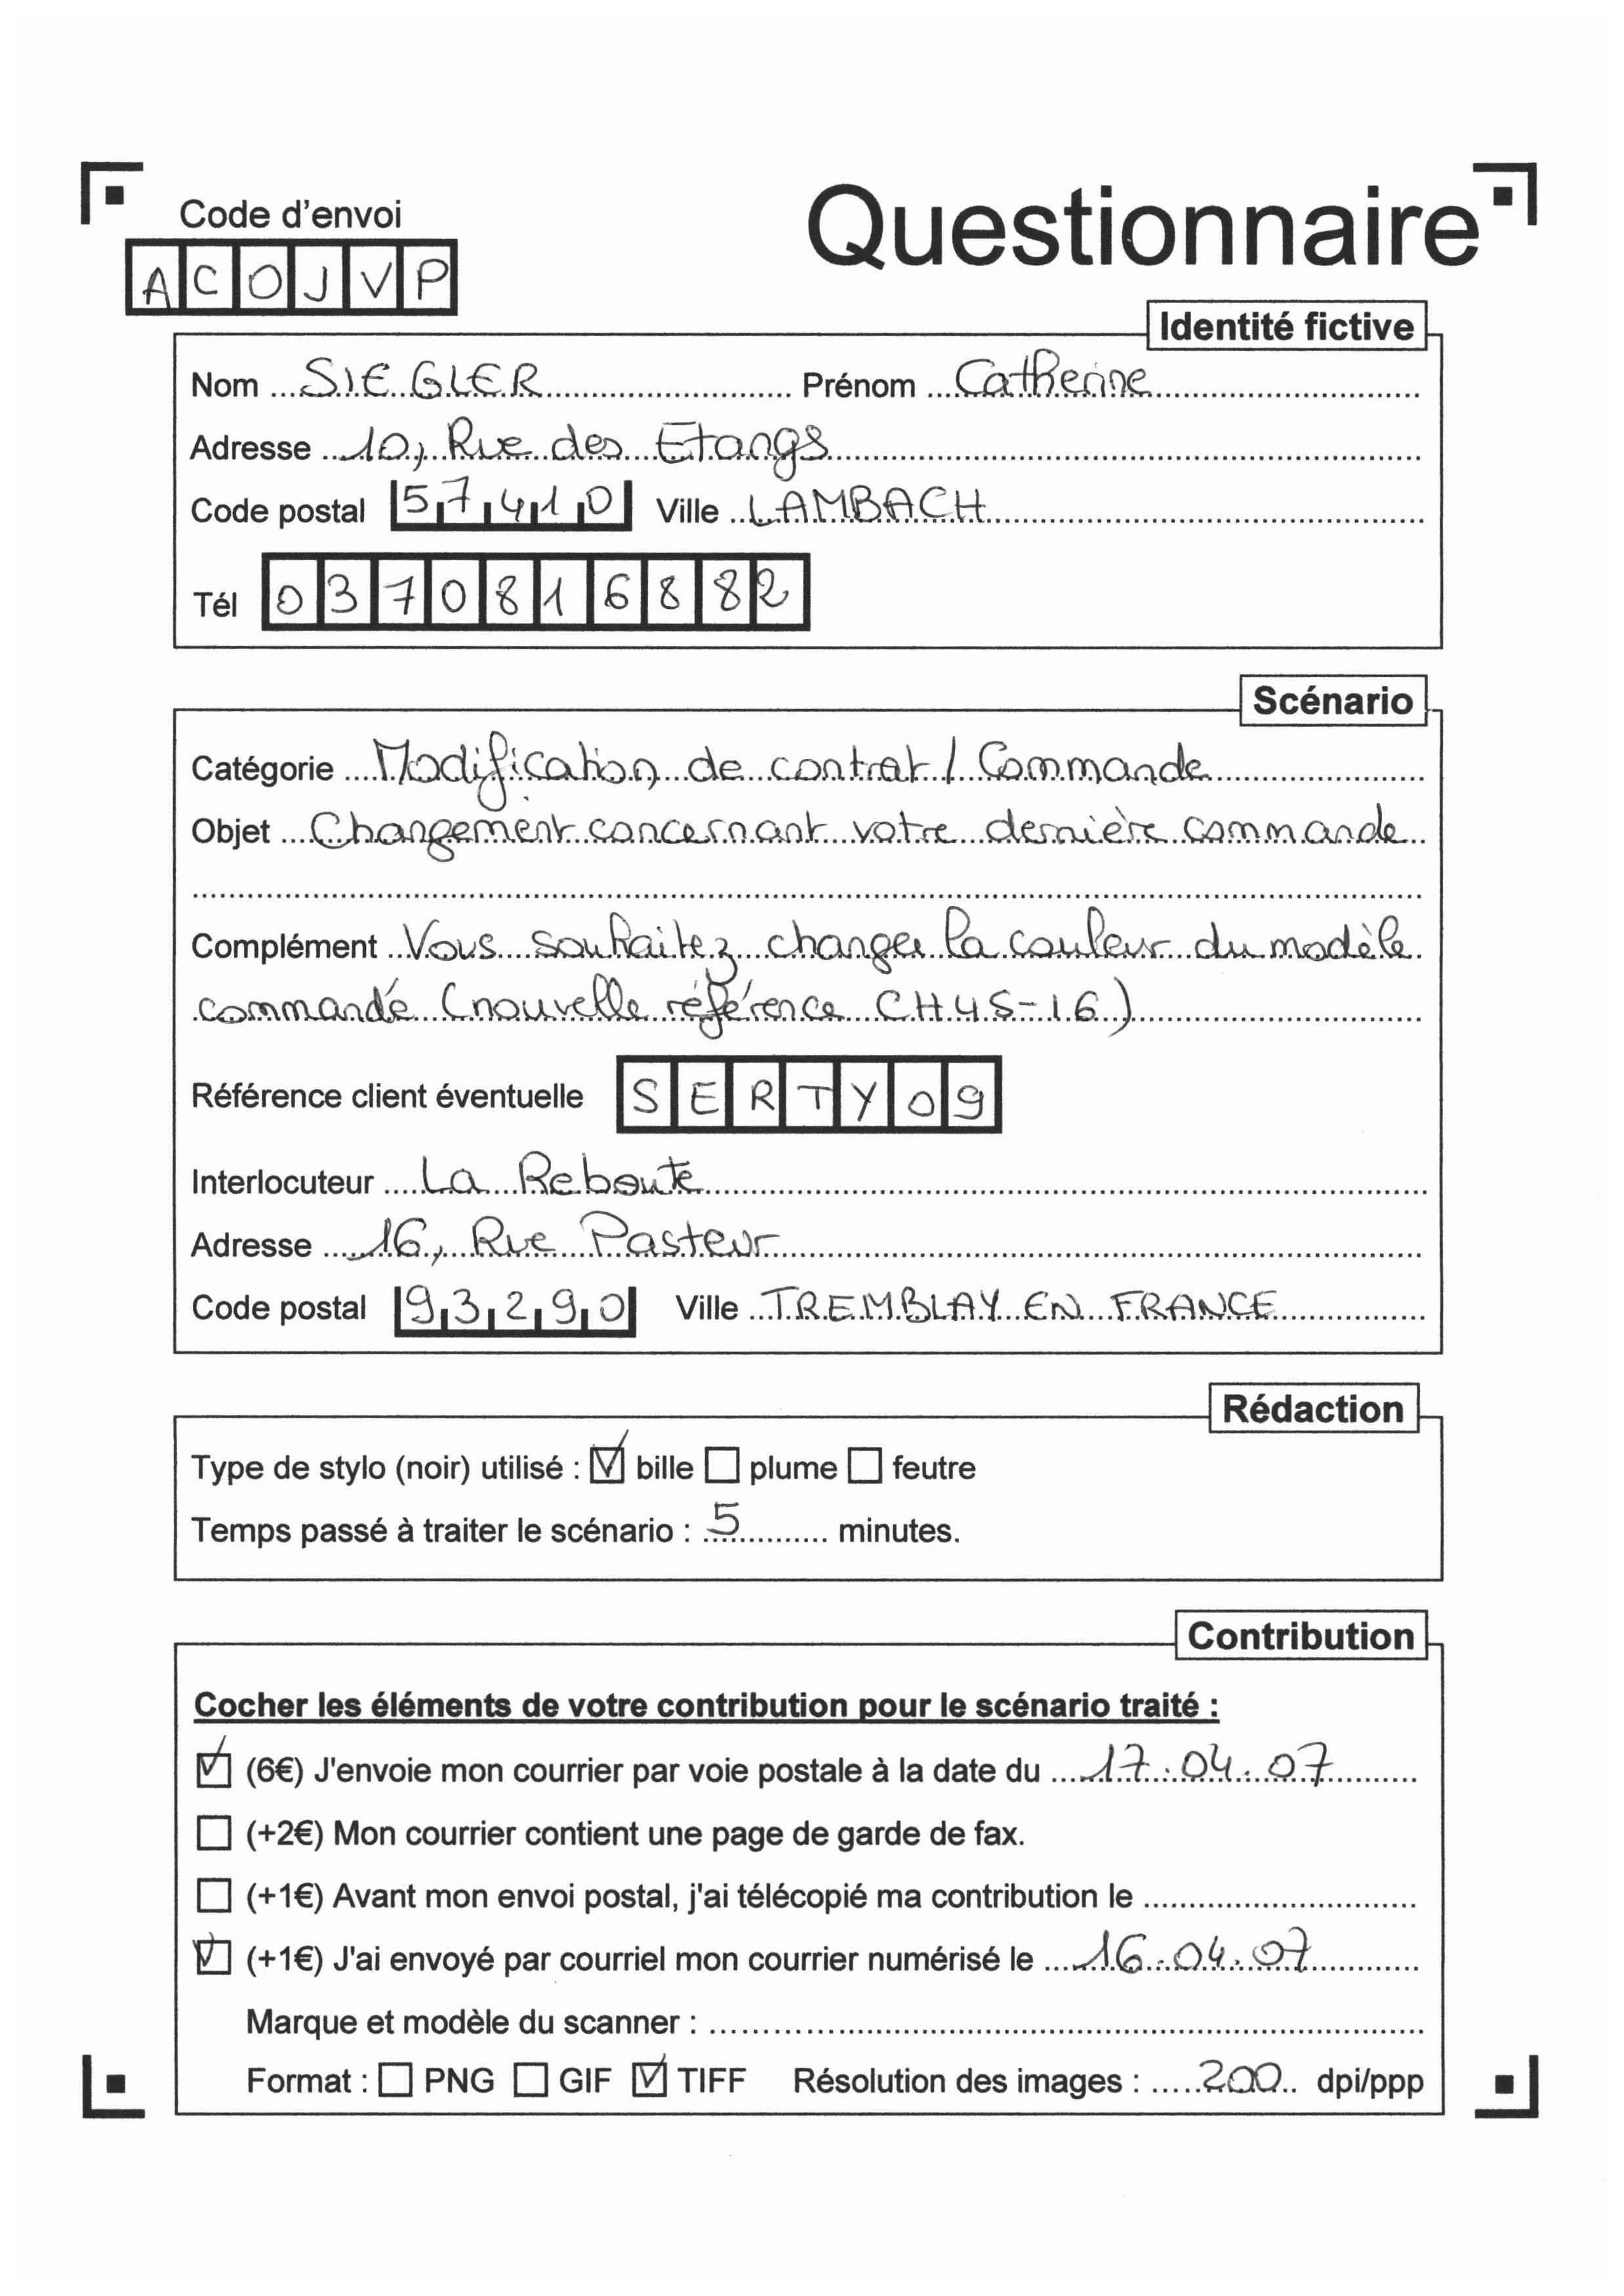 Code d'envoi
Questionnaire
ACOJVP
Identité fictive
Nom SIEGLER Prénom Catherine
Adresse 10, Rue des Etangs
Code postal 57410 Ville LAMBACH
Tél 0370816882
Scénario
Catégorie Modification de contrat / Commande
Objet Changement concernant votre dernière commande
Complément Vous souhaitez changer la couleur du modèle
commandé (nouvelle référence CH45-16)
Référence client éventuelle SERTY09
Interlocuteur La Reboute
Adresse 16, Rue Pasteur
Code postal 93290 Ville TREMBLAY EN FRANCE
Rédaction
Type de stylo (noir) utilisé : ☑ bille ☐ plume ☐ feutre
Temps passé à traiter le scénario : 5 minutes.
Contribution
Cocher les éléments de votre contribution pour le scénario traité :
☑ (6€) J'envoie mon courrier par voie postale à la date du 17.04.07
☐ (+2€) Mon courrier contient une page de garde de fax.
☐ (+1€) Avant mon envoi postal, j'ai télécopié ma contribution le
☑ (+1€) J'ai envoyé par courriel mon courrier numérisé le 16.04.07
Marque et modèle du scanner :
Format : ☐ PNG ☐ GIF ☑ TIFF Résolution des images : 200 dpi/ppp